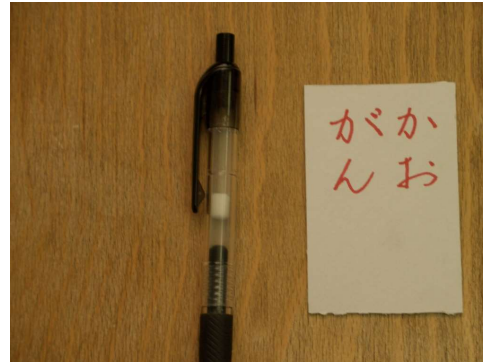 かお
がん